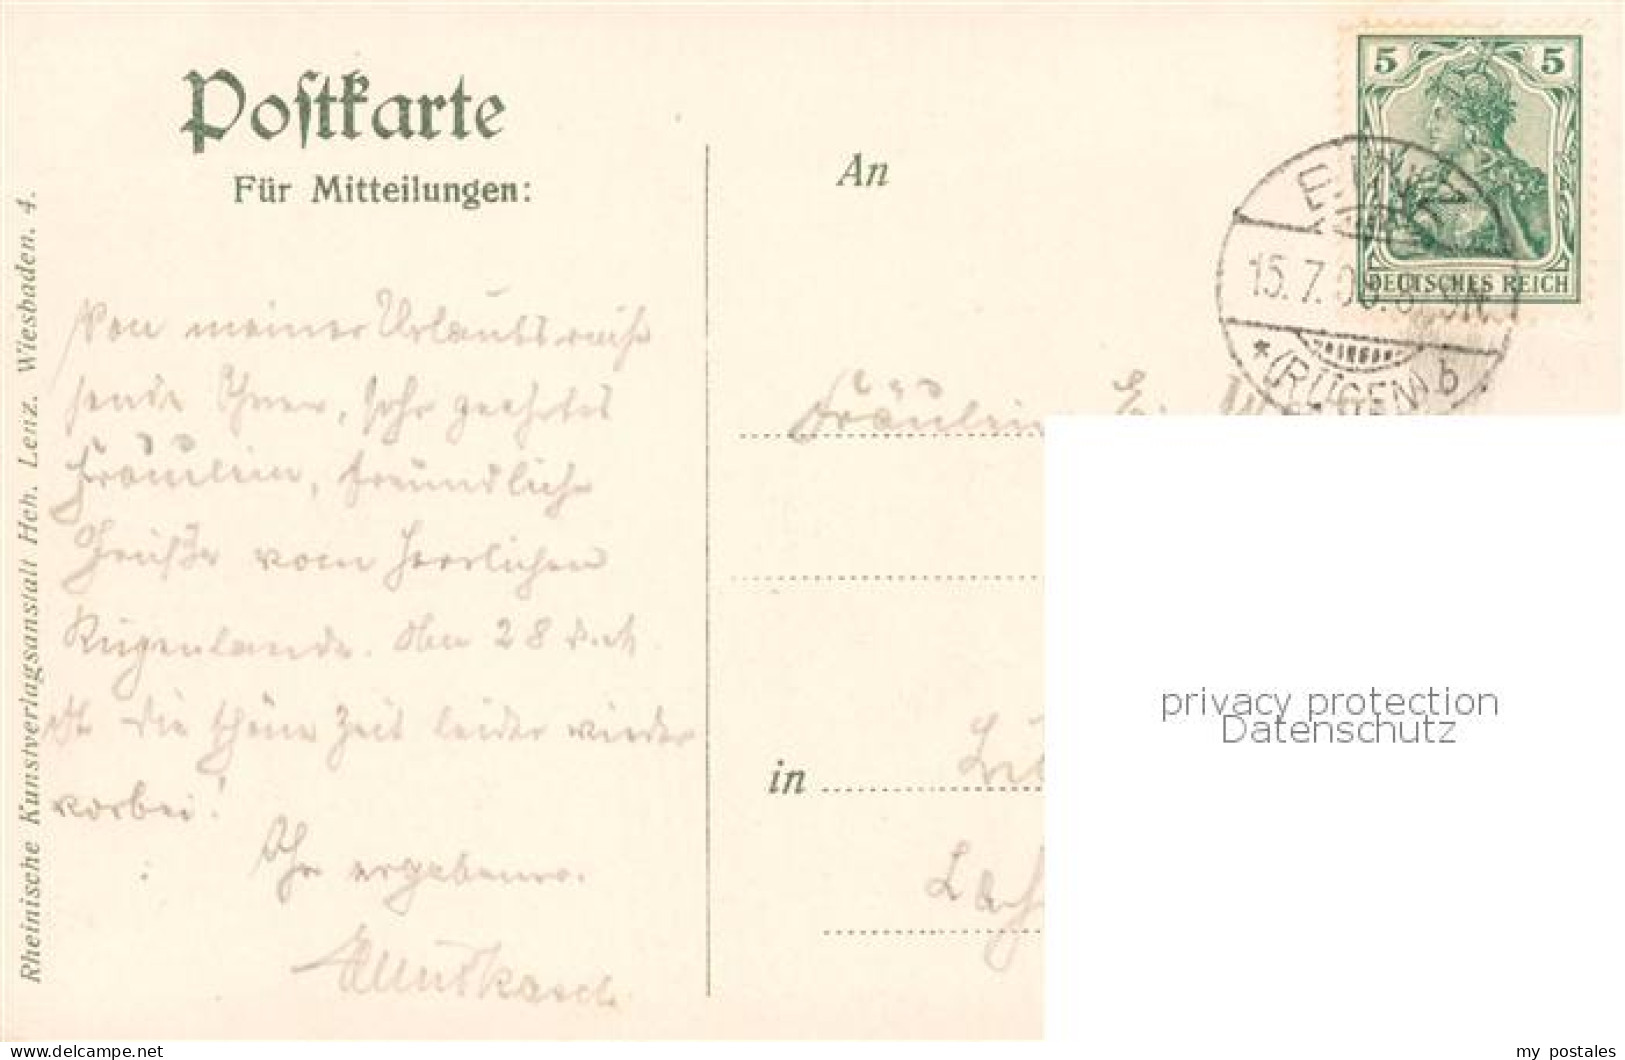 Postkarte
Für Mitteilungen:
An
5 5
DEUTSCHES REICH
BINZ
15.7.
*(RÜGEN) b
Von meiner Urlaubsreise
sende Ihnen, sehr geehrtes
Fräulein, freundliche
Grüße vom herrlichen
Rügenlande. Am 28 d. M.
ist die schöne Zeit leider wieder
vorbei!
Ihr ergebener
Fräulein E.
in
Rheinische Kunstverlagsanstalt Hch. Lenz. Wiesbaden. 4.
privacy protection
Datenschutz
my_postales
www.delcampe.net